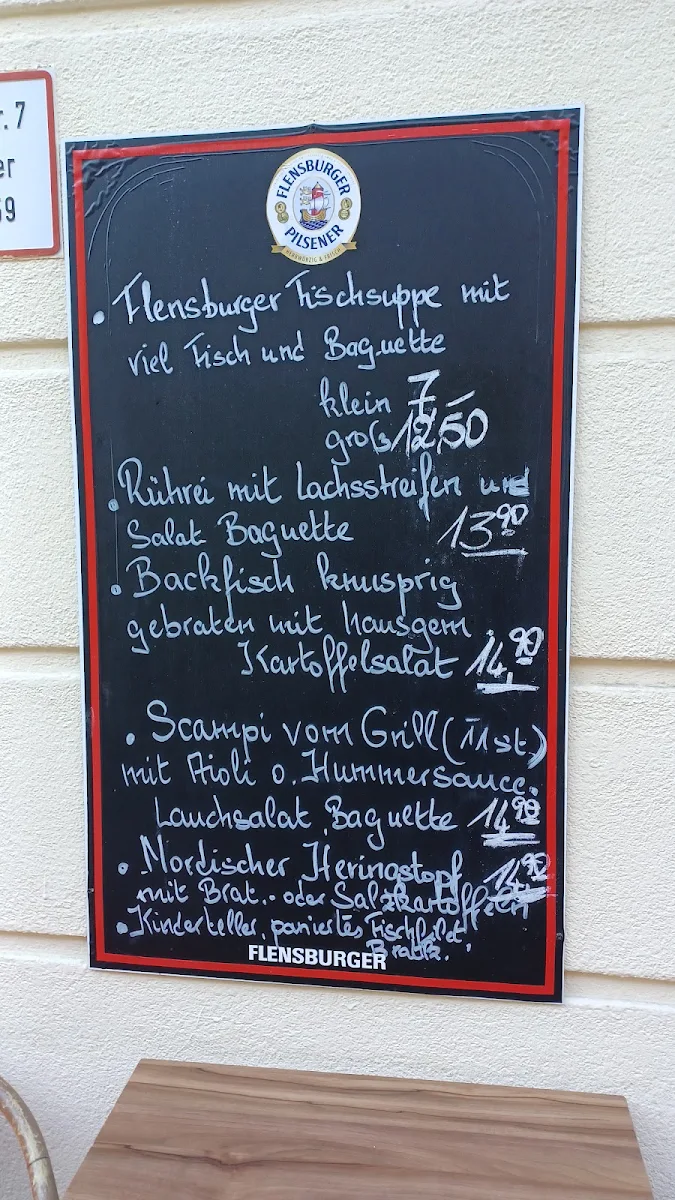 r. 7
er
59
FLENSBURGER
PILSENER
HERBWÜRZIG & FRISCH
• Flensburger Fischsuppe mit
viel Fisch und Baguette
klein 7,-
groß 12,50
• Rührei mit Lachsstreifen und
Salat Baguette 13,90
• Backfisch knusprig
gebraten mit hausgem.
Kartoffelsalat 14,90
• Scampi vom Grill (11 st.)
mit Aioli o. Hummersauce.
Lauchsalat, Baguette 14,90
• Nordischer Heringstopf 14,90
mit Brat.- oder Salzkartoffeln
• Kinderteller, paniertes Fischfilet,
Bratk.
FLENSBURGER